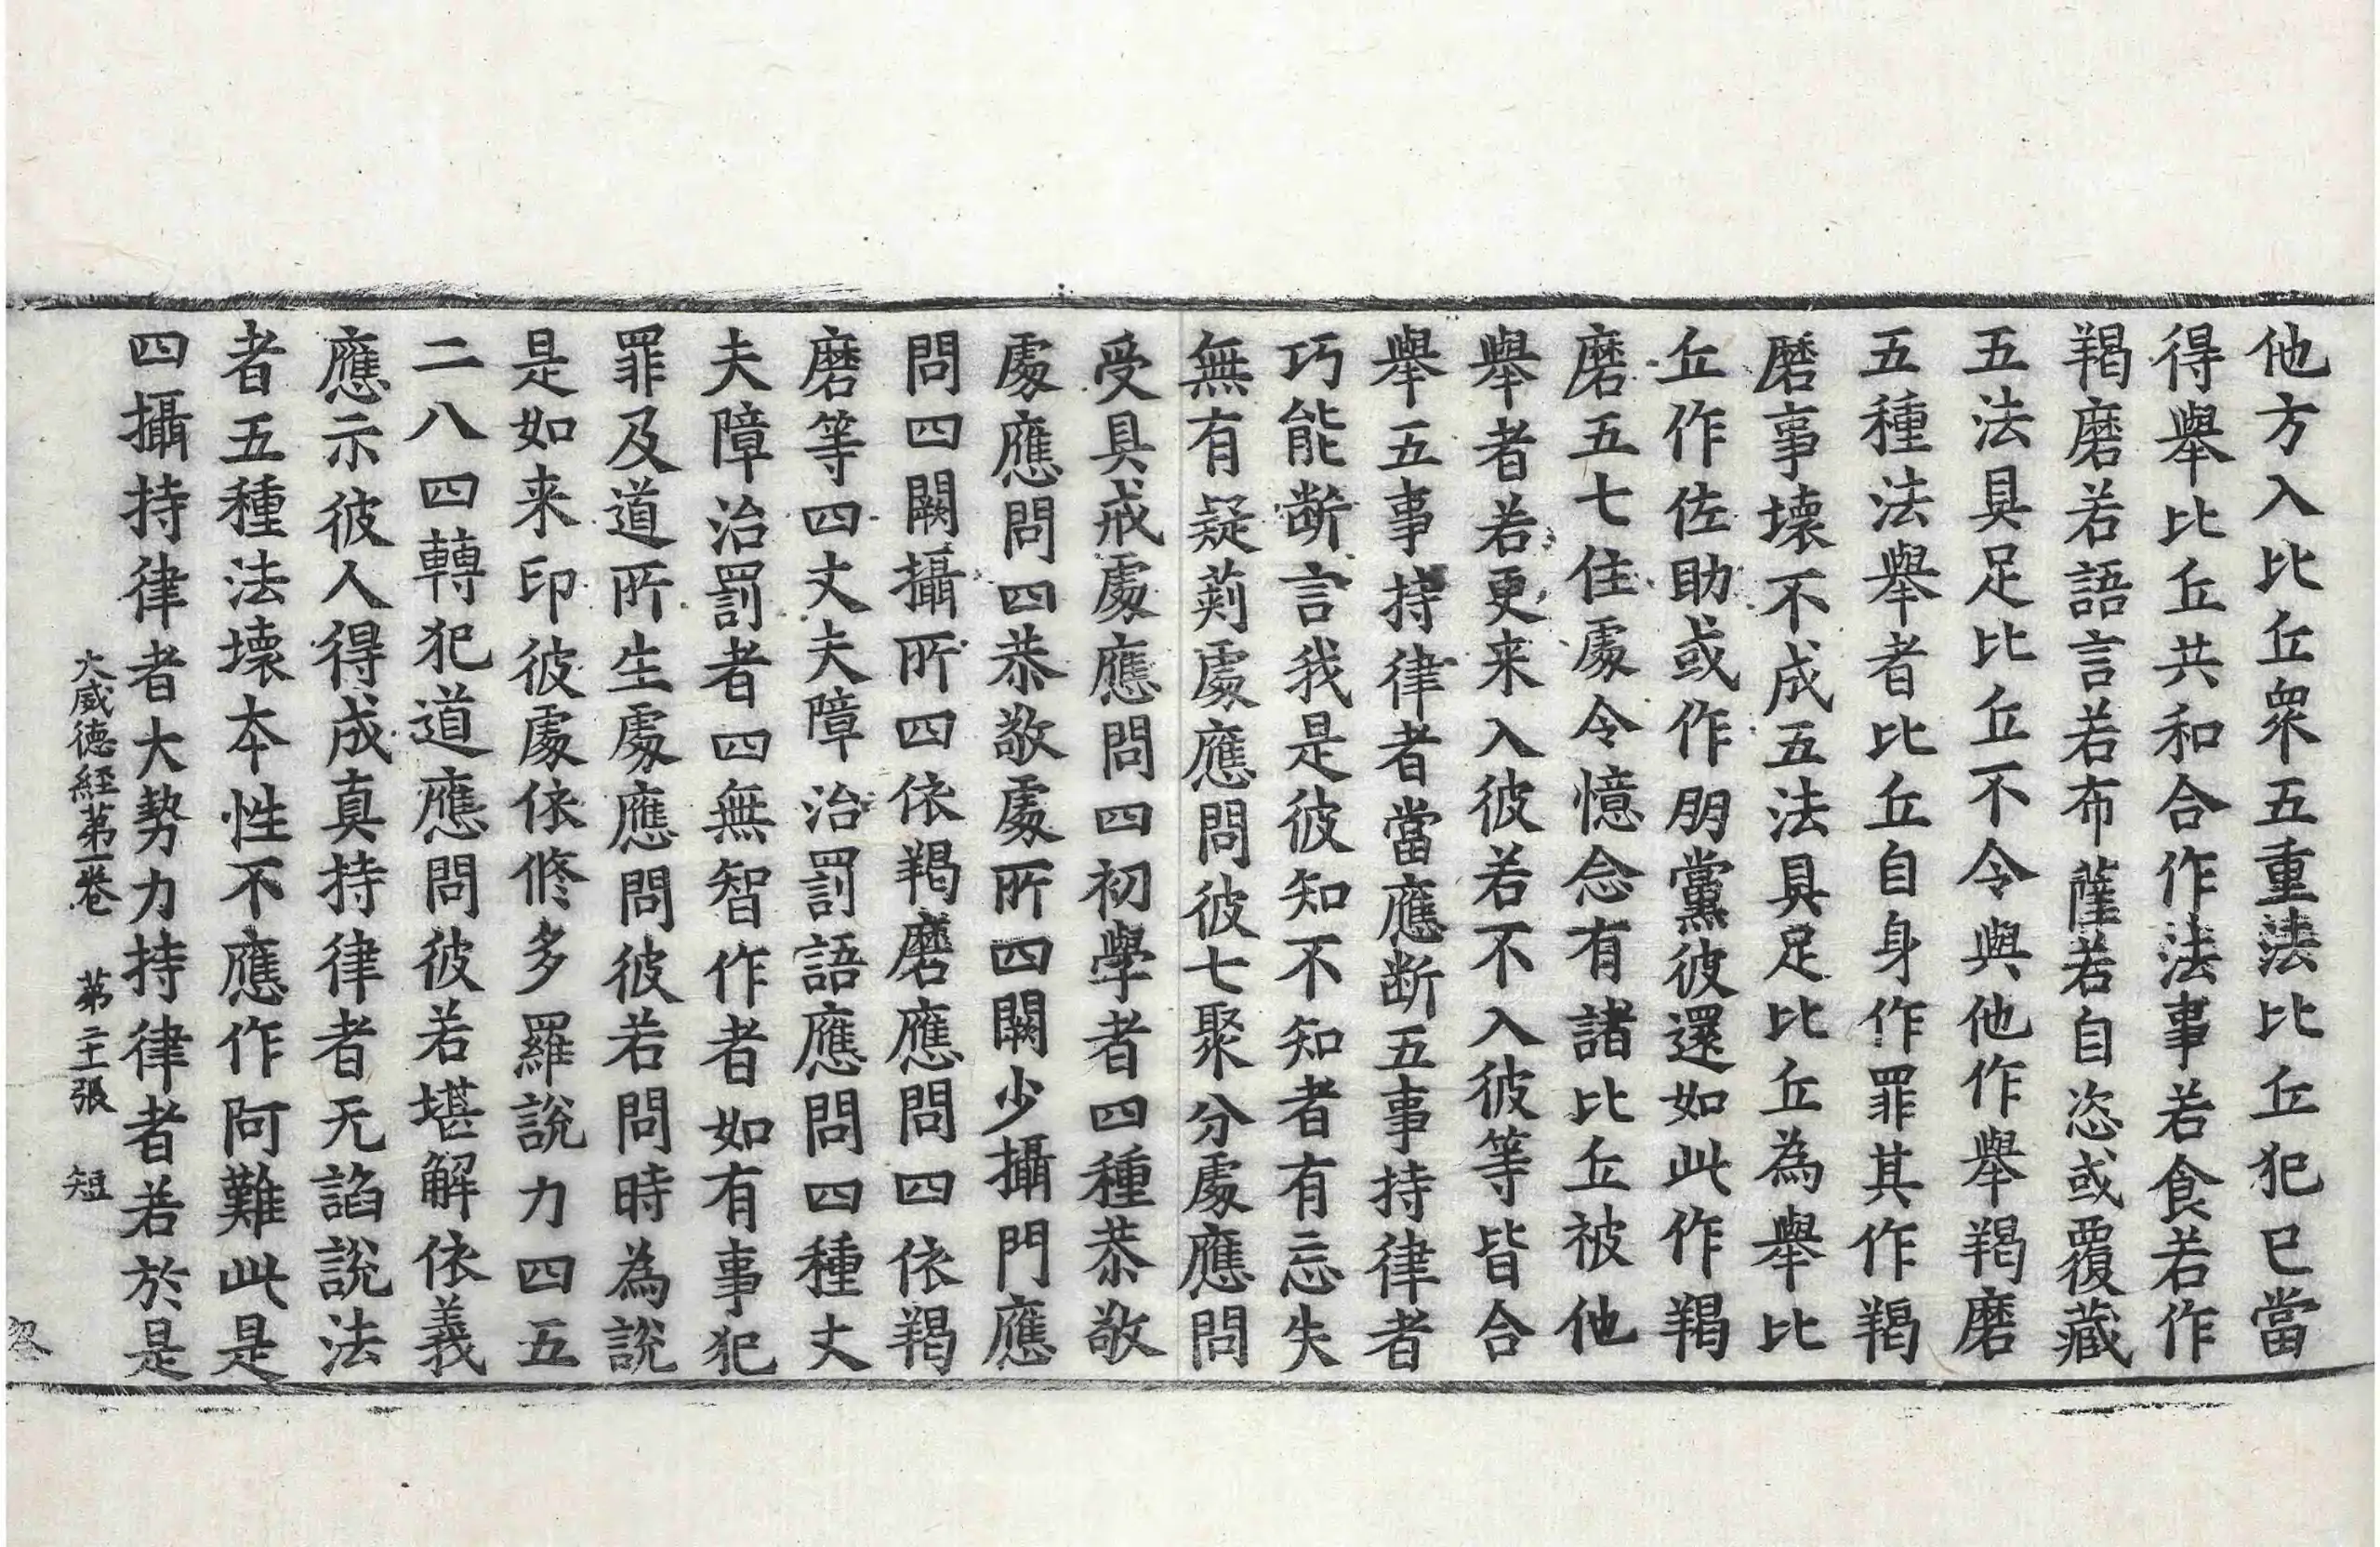 他方入比丘眾五重法比丘犯已當
得舉比丘共和合作法事若食若作
羯磨若語言若布薩若自恣或覆藏
五法具足比丘不令與他作舉羯磨
五種法舉者比丘自身作罪其作羯
磨事壞不成五法具足比丘為舉比
丘作佐助或作朋黨彼還如此作羯
磨五七住處令憶念有諸比丘被他
舉者若更来入彼若不入彼等皆合
舉五事持律者當應断五事持律者
巧能断言我是彼知不知者有忘失
無有疑莿處應問彼七聚分處應問
受具戒處應問四初學者四種恭敬
處應問四恭敬處所四闕少攝門應
問四闕攝所四依羯磨應問四依羯
磨等四丈夫障治罰語應問四種丈
夫障治罰者四無智作者如有事犯
罪及道所生處應問彼若問時為說
是如来印彼處依修多羅說力四五
二八四轉犯道應問彼若堪解依義
應示彼人得成真持律者无諂說法
者五種法壞本性不應作阿難此是
四攝持律者大勢力持律者若於是
大威德經第一卷 第二十一張 短